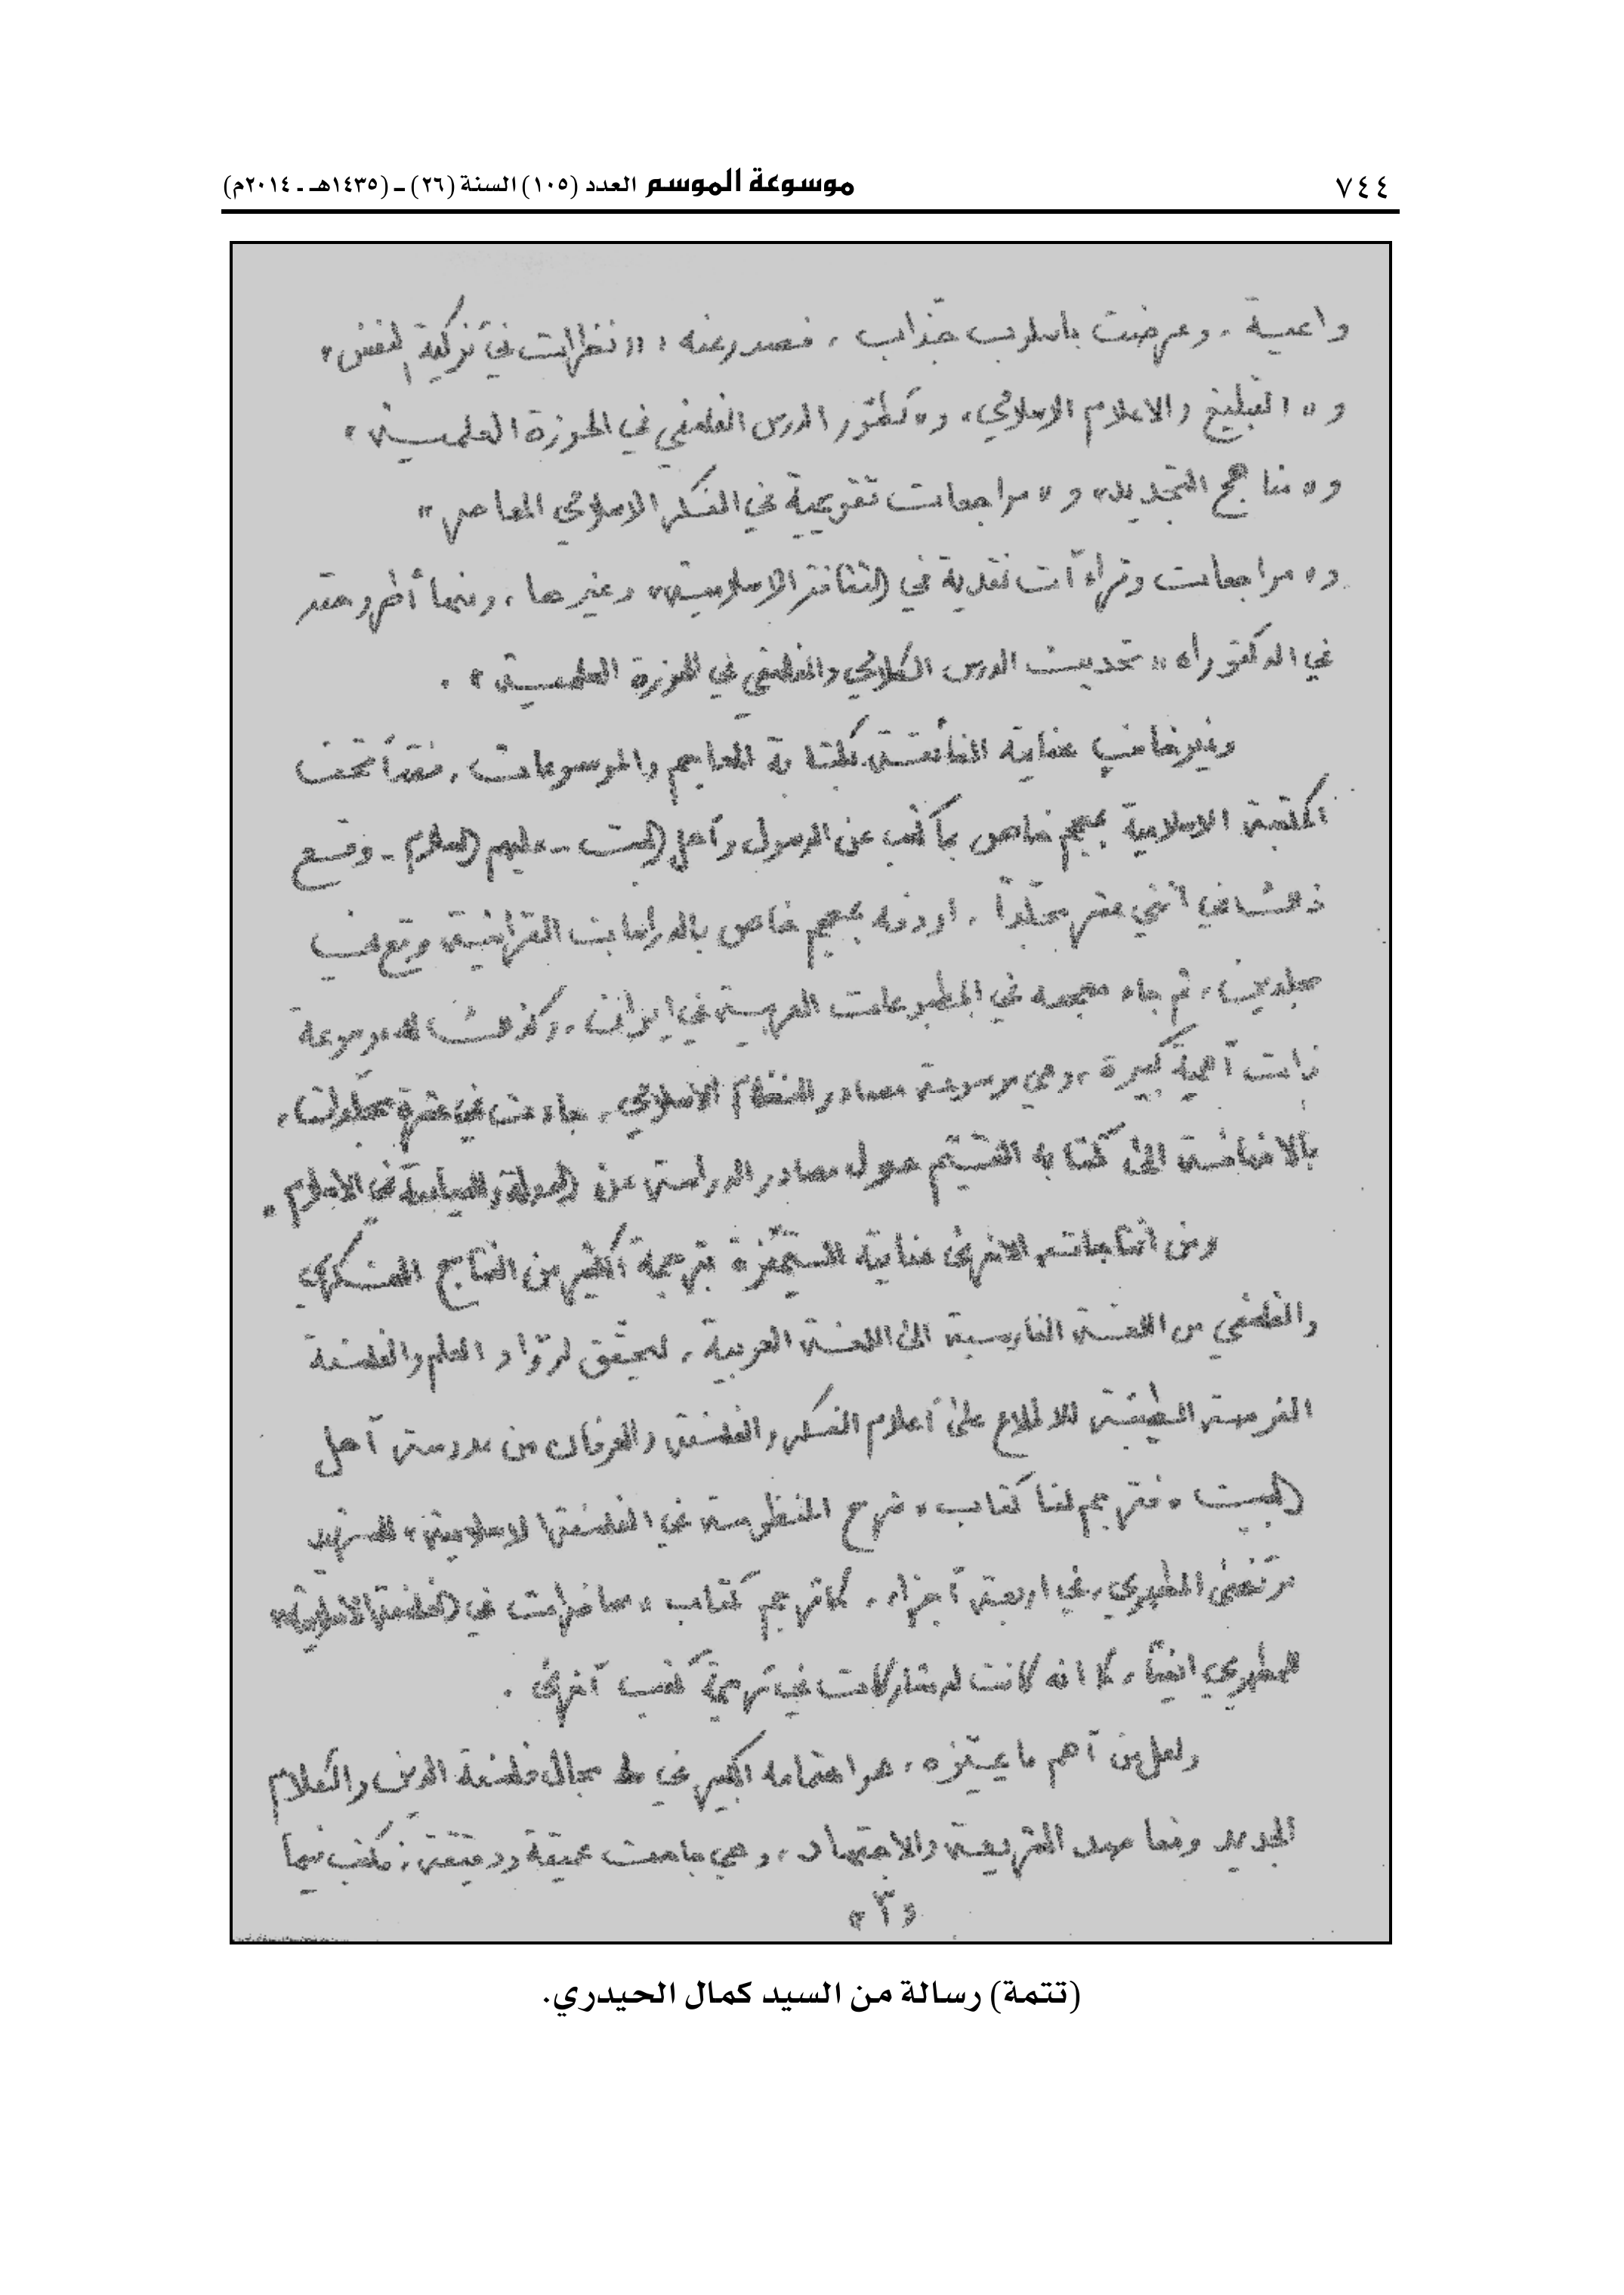 ٧٤٤
موسوعة الموسم العدد (١٠٥) السنة (٢٦) ـ (١٤٣٥هـ ـ ٢٠١٤م)
واعية، وعرضت بأسلوب جذّاب، فصدر عنه: «نظرات في تزكية النفس»
و«التبليغ والاعلام الاسلامي» و«تطوّر الدرس الفلسفي في الحوزة العلمية»
و«مناهج التجديد» و«مراجعات تقويمية في الفكر الاسلامي المعاصر»
و«مراجعات وقراءآت نقدية في الثقافة الاسلامية» وغيرها، ومنها أطروحته
في الدكتوراه «تحديث الدرس الكلامي والفلسفي في الحوزة العلمية».
عنايته الفائقة بكتابة المعاجم والموسوعات، فقد أتحف
المكتبة الاسلامية بمعجم خاص بما كتب عن الرسول وأهل البيت - عليهم السلام - وقع
ذلك في أثني عشر مجلّداً، اردفه بمعجم خاص بالدراسات القرآنية وقع في
مجلدين، ثم جاء معجمه في المطبوعات العربية في ايران، وكذلك له موسوعة
ذات أهمية كبيرة، وهي موسوعة مصادر النظام الاسلامي، جاءت في عشرة مجلّدات،
بالاضافة الى كتابه القيّم حول مصادر الدراسة عن الدولة والسياسة في الاسلام.
ومن الاخرى عنايته المتميّزة بترجمة الكثير من النتاج الفكري
والفلسفي من اللغة الفارسية الى اللغة العربية، ليحقق لروّاد العلم والفلسفة
الفرصة الطيّبة للاطلاع على أعلام الفكر والفلسفة والعرفان من مدرسة أهل
البيت، فترجم لنا كتاب «شرح المنظومة في الفلسفة الاسلامية» للشهيد
مرتضى المطهري، في اربعة أجزاء، كما ترجم كتاب «محاضرات في الفلسفة الاسلامية»
للمطهري ايضاً، كما انه كانت له مشاركات في ترجمة كتب أخرى.
ولعل من أهم ما يميّزه، هو اهتمامه الكبير في مجال فلسفة الدين والكلام
الجديد ومقاصد الشريعة والاجتهاد، وهي مباحث عميقة ودقيقة، كتب فيها
«٣»
(تتمة) رسالة من السيد كمال الحيدري.